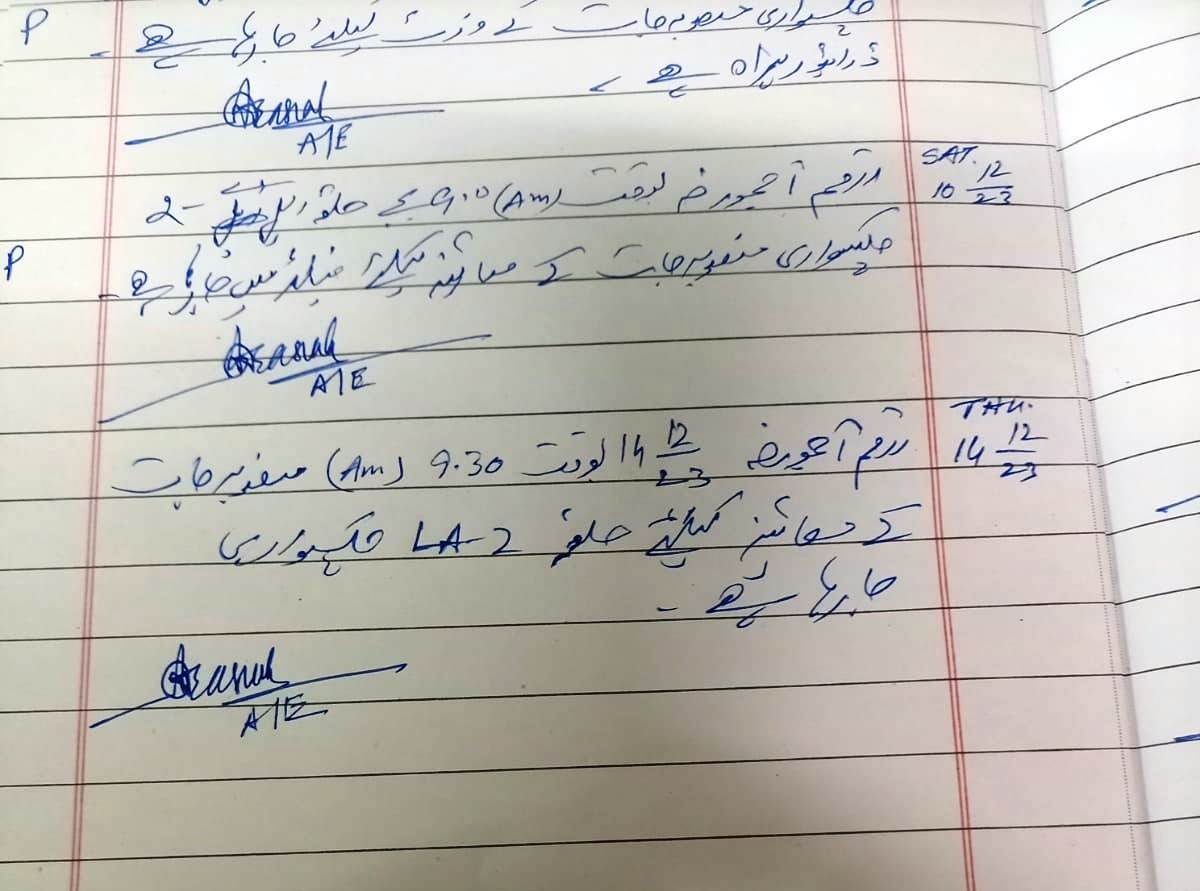 P چکسواری منصوبہ جات کے وزٹ کیلئے جا رہا ہے -
ڈرائیور ہمراہ ہے -
A/E
SAT. 10 12/23
راقم آجمورخہ بوقت 9.0 (Am) بجے حلقہ ایل اے -2
P چکسواری منصوبہ جات کے معائنہ کیلئے فیلڈ میں جا رہا ہے -
A/E
THU. 14 12/23
راقم آجمورخہ 14 12/23 بوقت 9.30 (Am) منصوبہ جات
کے معائنہ کیلئے حلقہ LA-2 چکسواری
جا رہا ہے -
A/E